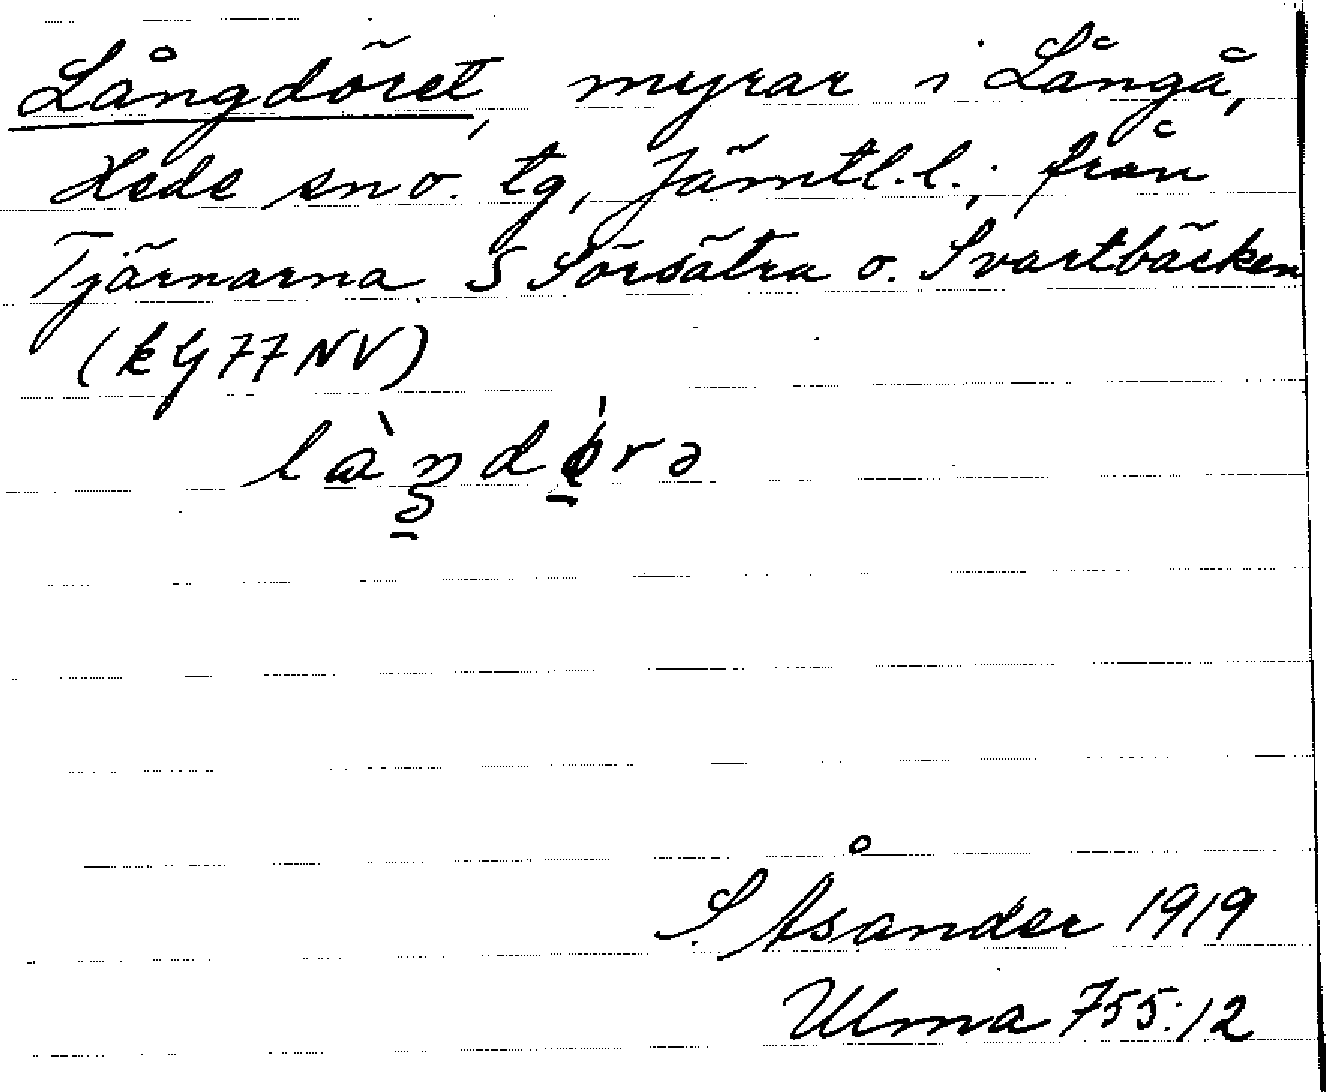 Långdöret, myrar i Långå,
Hede sn o. tg, Jämtl.l.; från
Tjärnarna S Sörsätra o. Svartbäcken
(kG 77 NV)
S. Åsander 1919
Ulma 755:12